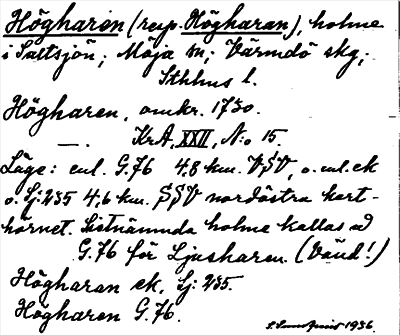 Högharen (resp. Högharan), holme
i Saltsjön; Möja sn; Värmdö skg;
Sthlms l.
Högharen, omkr. 1730.
—. KrA, XXII, N:o 15.
Läge: enl. G.76 4.8 km. VSV, o. enl. ek
o. Sj:235 4.6 km. SSV nordöstra kart-
hörnet. Sistnämnda holme kallas å
G.76 för Ljusharen. (Vänd!)
Högharan ek, Sj: 235.
Högharen G.76.
1936.